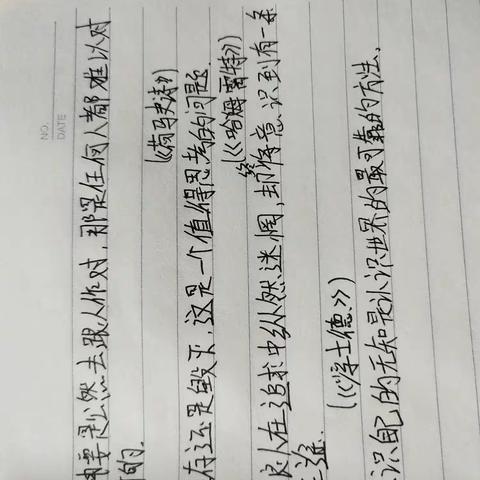 NO.
DATE
要是公然去跟人作对,那是任何人都难以对
的.
(《荷马史诗》)
存还是毁灭,这是一个值得思考的问题.
(《哈姆雷特》)
良人在追求中纵然迷惘,却终得意识到有一条
正途.
(《浮士德》)
识自己的无知是认识世界的最可靠的方法.